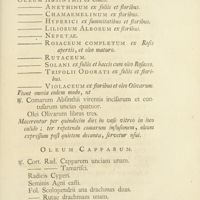 ANETHINUM ex foliis et floribus.
CHAMAEMELINUM ex floribus.
HYPERICI ex summitatibus et floribus.
LILIORUM ALBORUM ex floribus.
NEPETAE.
ROSACEUM COMPLETUM ex Rosis
apertis, et oleo maturo.
RUTACEUM.
SOLANI ex foliis et baccis cum oleo Rosaceo.
TRIFOLII ODORATI ex foliis et floribus.
VIOLACEUM ex floribus et oleo Olivarum.
Fiunt omnia eodem modo, ut
℞ Comarum Absinthii virentis incisarum et contusarum uncias quatuor.
Olei Olivarum libras tres.
Macerentur per quindecim dies in vase vitreo in loco
calido: ter repetendo comarum infusionem, oleum
expressum post quietem decanta, servetur usui.
OLEUM CAPPARUM.
℞ Cort. Rad. Capparum unciam unam.
Tamarisci.
Radicis Cyperi
Seminis Agni casti.
Fol. Scolopendrii ana drachmas duas.
Rutae drachmam unam.